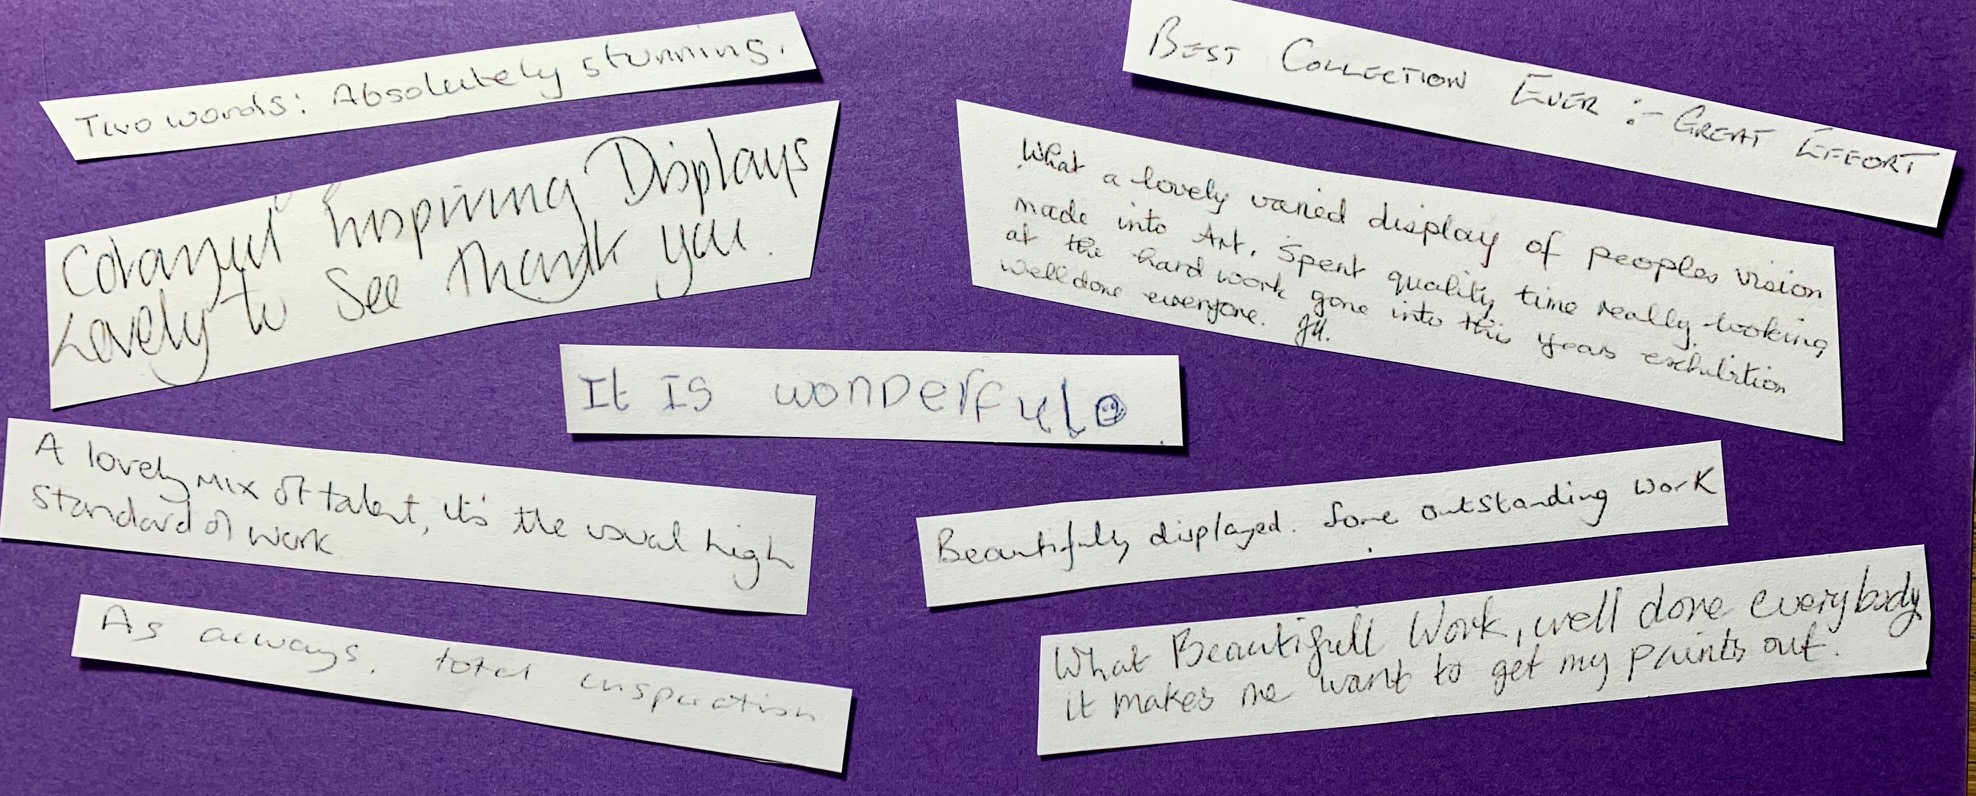 Two words: Absolutely stunning.
BEST COLLECTION EVER :- GREAT EFFORT
Inspiring Displays
Lovely to see Thank you.
What a lovely varied display of peoples vision
made into Art. Spent quality time really looking
at the hard work gone into this years exhibition
Well done everyone. JH.
It Is wonderful
A lovely mix of talent, it's the usual high
standard of work
Beautifully displayed. Some outstanding work
As always, total inspiration
What Beautifull Work, well done everybody
it makes me want to get my paints out.